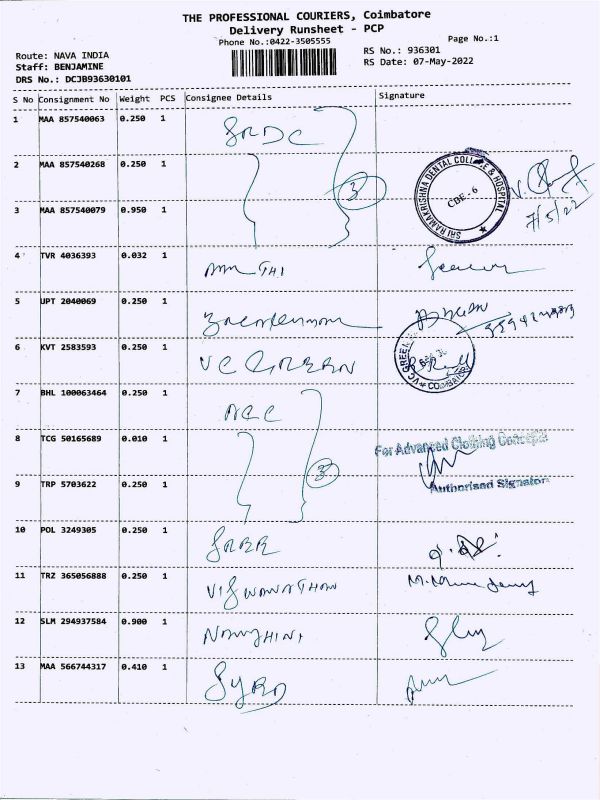 THE PROFESSIONAL COURIERS, Coimbatore
Delivery Runsheet - PCP
Phone No.:0422-3505555
Page No.:1
Route: NAVA INDIA
RS No.: 936301
Staff: BENJAMINE
RS Date: 07-May-2022
DRS No.: DCJB93630101
S No Consignment No Weight PCS Consignee Details Signature
1 MAA 857540063 0.250 1 SRDC
2 MAA 857540268 0.250 1
3
SRI RAMAKRISHNA DENTAL COLLEGE & HOSPITAL
CBE-6
7/5/22
3 MAA 857540079 0.950 1
4 TVR 4036393 0.032 1
5 UPT 2040069 0.250 1
6 KVT 2583593 0.250 1 VC GREEN
VC GREEN COIMBATORE
7 BHL 100063464 0.250 1 ACC
8 TCG 50165689 0.010 1
For Advanced Clothing Concepts
3
Authorised Signatory
9 TRP 5703622 0.250 1
10 POL 3249305 0.250 1
11 TRZ 365056888 0.250 1 VISWANATHAN
12 SLM 294937584 0.900 1
13 MAA 566744317 0.410 1